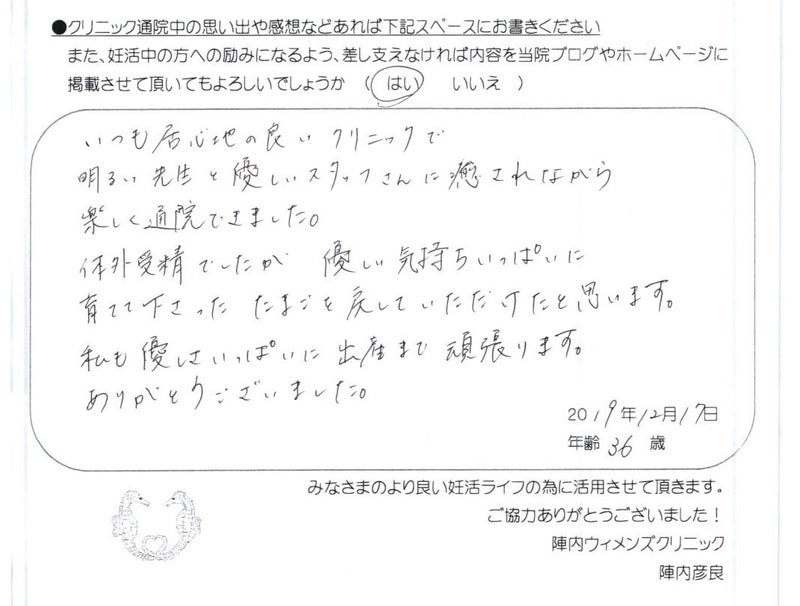 ●クリニック通院中の思い出や感想などあれば下記スペースにお書きください
また、妊活中の方への励みになるよう、差し支えなければ内容を当院ブログやホームページに
掲載させて頂いてもよろしいでしょうか （ はい いいえ ）
いつも居心地の良いクリニックで
明るい先生と優しいスタッフさんに癒されながら
楽しく通院できました。
体外受精でしたが 優しい気持ちいっぱいに
育てて下さった たまごを戻していただけたと思います。
私も優しさいっぱいに出産まで頑張ります。
ありがとうございました。
2019年12月17日
年齢 36 歳
みなさまのより良い妊活ライフの為に活用させて頂きます。
ご協力ありがとうございました！
陣内ウィメンズクリニック
陣内彦良